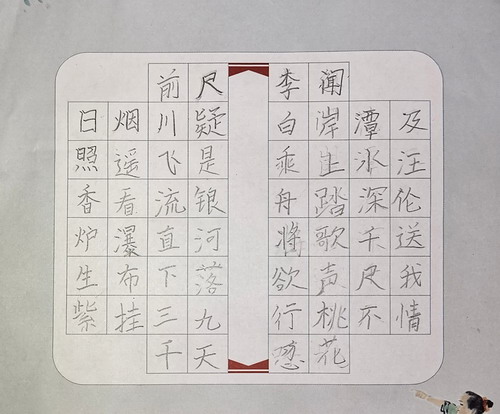 日照香炉生紫
烟遥看瀑布挂
前川飞流直下三千
尺疑是银河落九天
李白乘舟将欲行忽
闻岸上踏歌声桃花
潭水深千尺不
及汪伦送我情